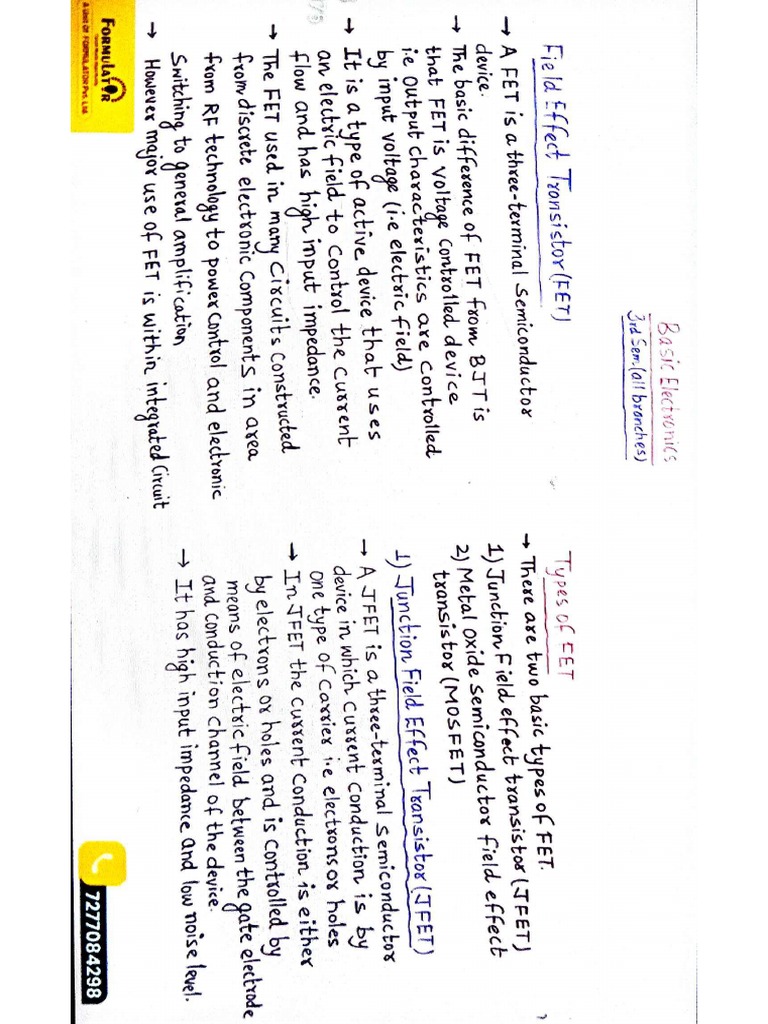 Basic Electronics
3rd Sem.(all branches)
Field Effect Transistor (FET)
→ A FET is a three-terminal semiconductor
device.
→ The basic difference of FET from BJT is
that FET is voltage controlled device
i.e output characteristics are controlled
by input voltage (i.e electric field)
→ It is a type of active device that uses
an electric field to control the current
flow and has high input impedance.
→ The FET used in many circuits constructed
from discrete electronic components in area
from RF technology to power control and electronic
Switching to general amplification
→ However major use of FET is within integrated Circuit
Types of FET
→ There are two basic types of FET.
1) Junction Field effect transistor (JFET)
2) Metal oxide semiconductor field effect
transistor (MOSFET)
1) Junction Field Effect Transistor (JFET)
→ A JFET is a three-terminal semiconductor
device in which current conduction is by
one type of carrier i.e electrons or holes
→ In JFET the current conduction is either
by electrons or holes and is controlled by
means of electric field between the gate electrode
and conduction channel of the device.
→ It has high input impedance and low noise level.
FORMULATOR
A Unit Of FORMULATOR Pvt. Ltd.
7277084298